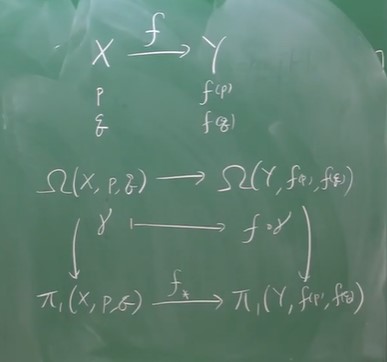 X —f→ Y
p f(p)
q f(q)
Ω(X, p, q) → Ω(Y, f(p), f(q))
γ ↦ f∘γ
π₁(X, p, q) —f_*→ π₁(Y, f(p), f(q))